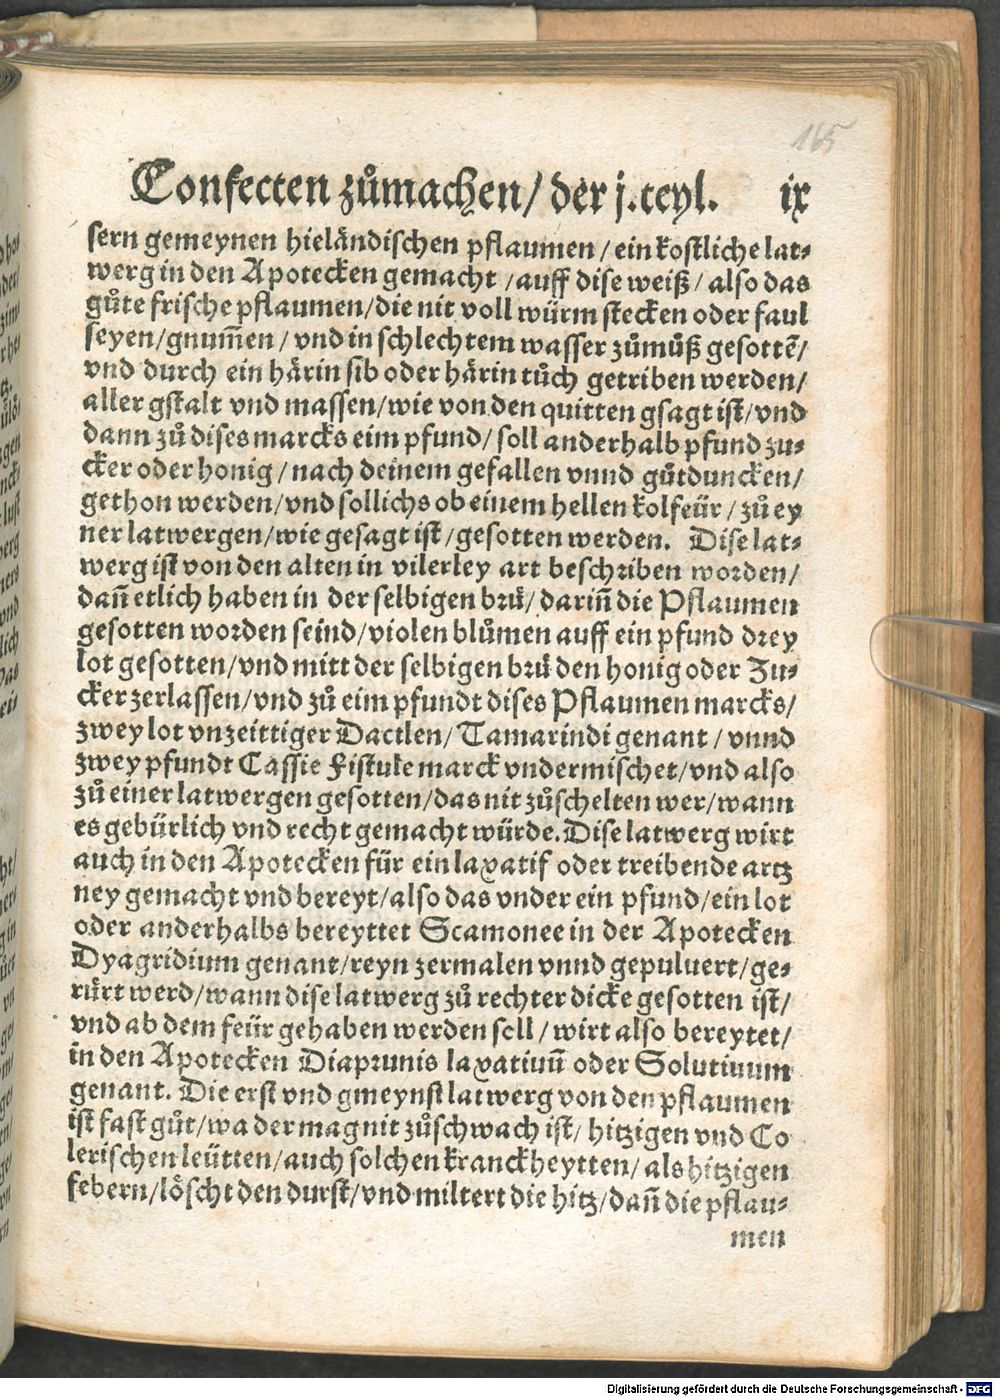 165
Confecten zůmachen/ der j. teyl. ix
sern gemeynen hieländischen pflaumen / ein kostliche lat⸗
werg in den Apotecken gemacht / auff dise weiß / also das
gůte frische pflaumen/die nit voll würm stecken oder faul
seyen/gnum̃en / vnd in schlechtem wasser zůmůß gesottẽ/
vnd durch ein härin sib oder härin tůch getriben werden/
aller gstalt vnd massen/wie von den quitten gsagt ist/vnd
dann zů dises marcks eim pfund/ soll anderhalb pfund zu⸗
cker oder honig / nach deinem gefallen vnnd gůtduncken/
gethon werden/vnd sollichs ob einem hellen kolfeür / zů ey
ner latwergen/wie gesagt ist/gesotten werden. Dise lat⸗
werg ist von den alten in vilerley art beschriben worden/
dañ etlich haben in der selbigen brü/ dariñ die Pflaumen
gesotten worden seind/violen blůmen auff ein pfund drey
lot gesotten/vnd mitt der selbigen brü den honig oder Zu⸗
cker zerlassen/vnd zů eim pfundt dises Pflaumen marcks/
zwey lot vnzeittiger Dactlen/ Tamarindi genant / vnnd
zwey pfundt Cassie Fistule marck vndermischet/vnd also
zů einer latwergen gesotten/das nit zůschelten wer/wann
es gebürlich vnd recht gemacht würde. Dise latwerg wirt
auch in den Apotecken für ein laxatif oder treibende artz
ney gemacht vnd bereyt/also das vnder ein pfund/ein lot
oder anderhalbs bereyttet Scamonee in der Apotecken
Dyagridium genant/reyn zermalen vnnd gepuluert/ge⸗
rürt werd/wann dise latwerg zů rechter dicke gesotten ist/
vnd ab dem feür gehaben werden soll / wirt also bereytet/
in den Apotecken Diaprunis laxatiuũ oder Solutiuum
genant. Die erst vnd gmeynst latwerg von den pflaumen
ist fast gůt/wa der mag nit zůschwach ist/ hitzigen vnd Co
lerischen leütten/auch solchen kranckheytten/ als hitzigen
febern/löscht den durst/vnd miltert die hitz/dañ die pflau⸗
men
Digitalisierung gefördert durch die Deutsche Forschungsgemeinschaft - DFG